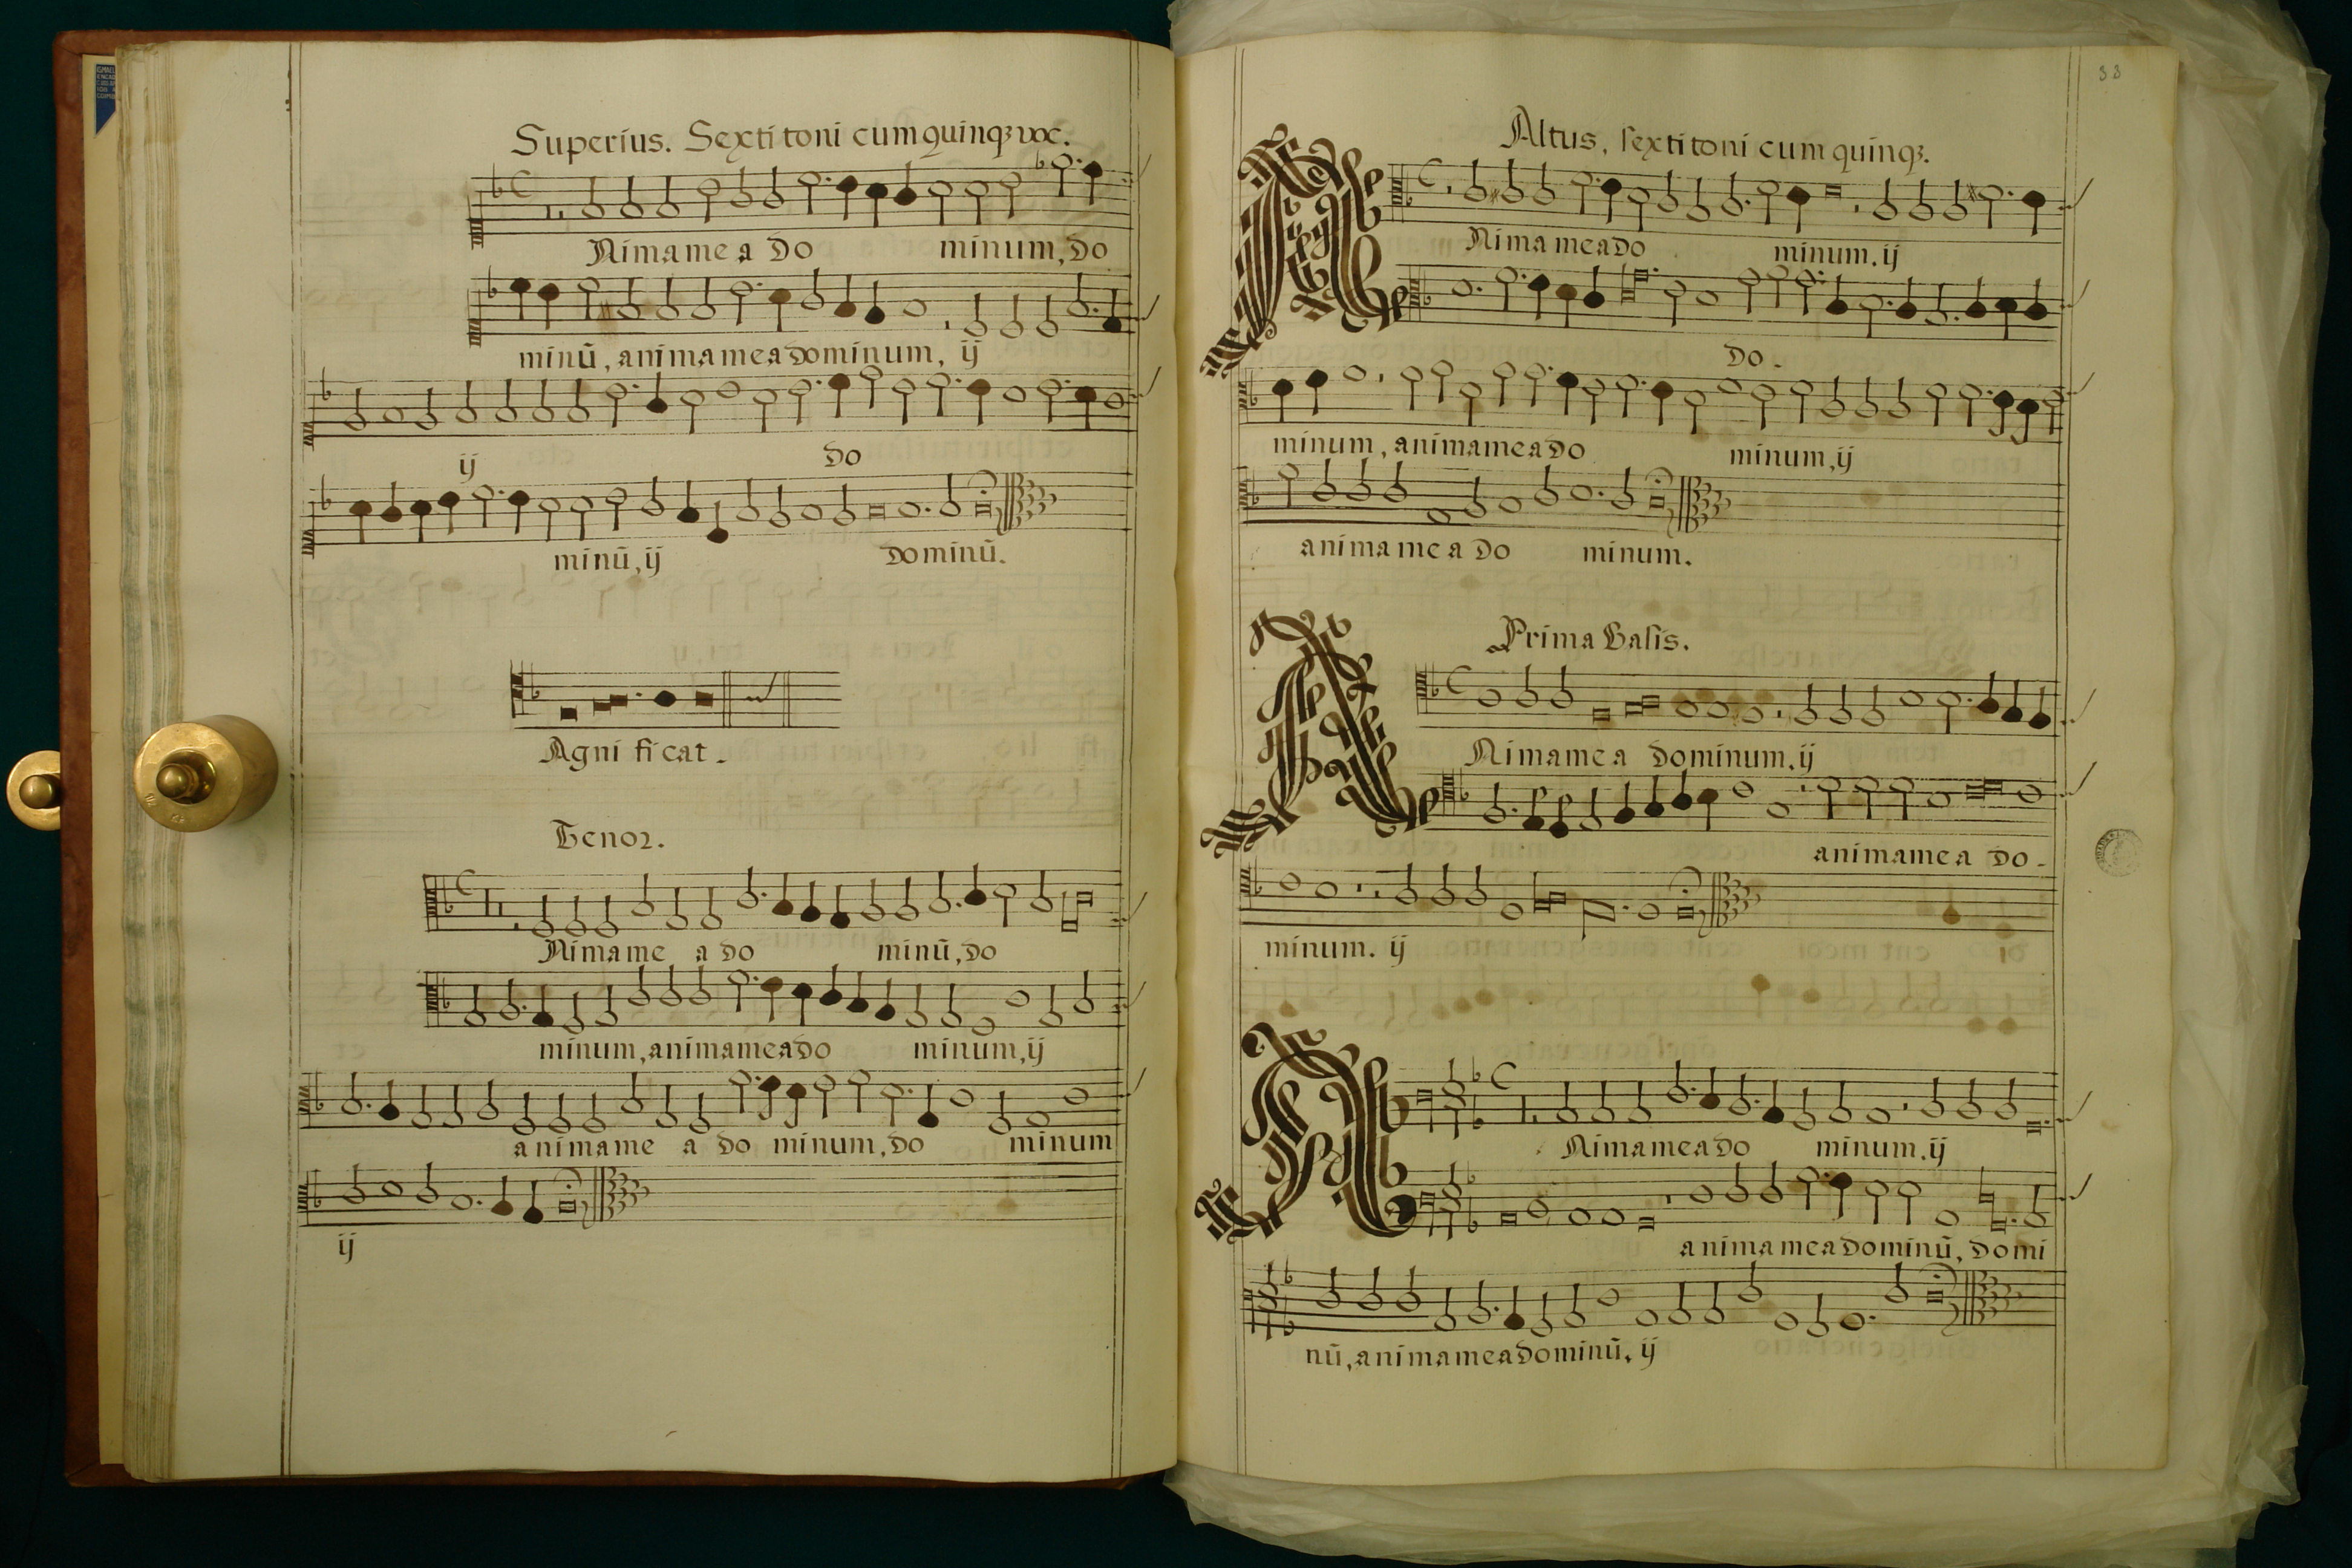 Superius. Sexti toni cum quinqꝫ voc.
Nima me a do minum, do
minū, anima mea dominum, ij
ij do
minū, ij dominū.
Agni ficat.
Tenor.
Nima me a do minū, do
minum, anima mea do minum, ij
anima me a do minum, do minum
ij
33
Altus, sexti toni cum quinqꝫ.
Nima mea do minum. ij
do.
minum, anima mea do minum, ij
anima me a do minum.
Prima Basis.
Nima me a dominum, ij
anima me a do.
minum. ij
Nima mea do minum. ij
anima mea dominū, domi
nū, anima mea dominū, ij